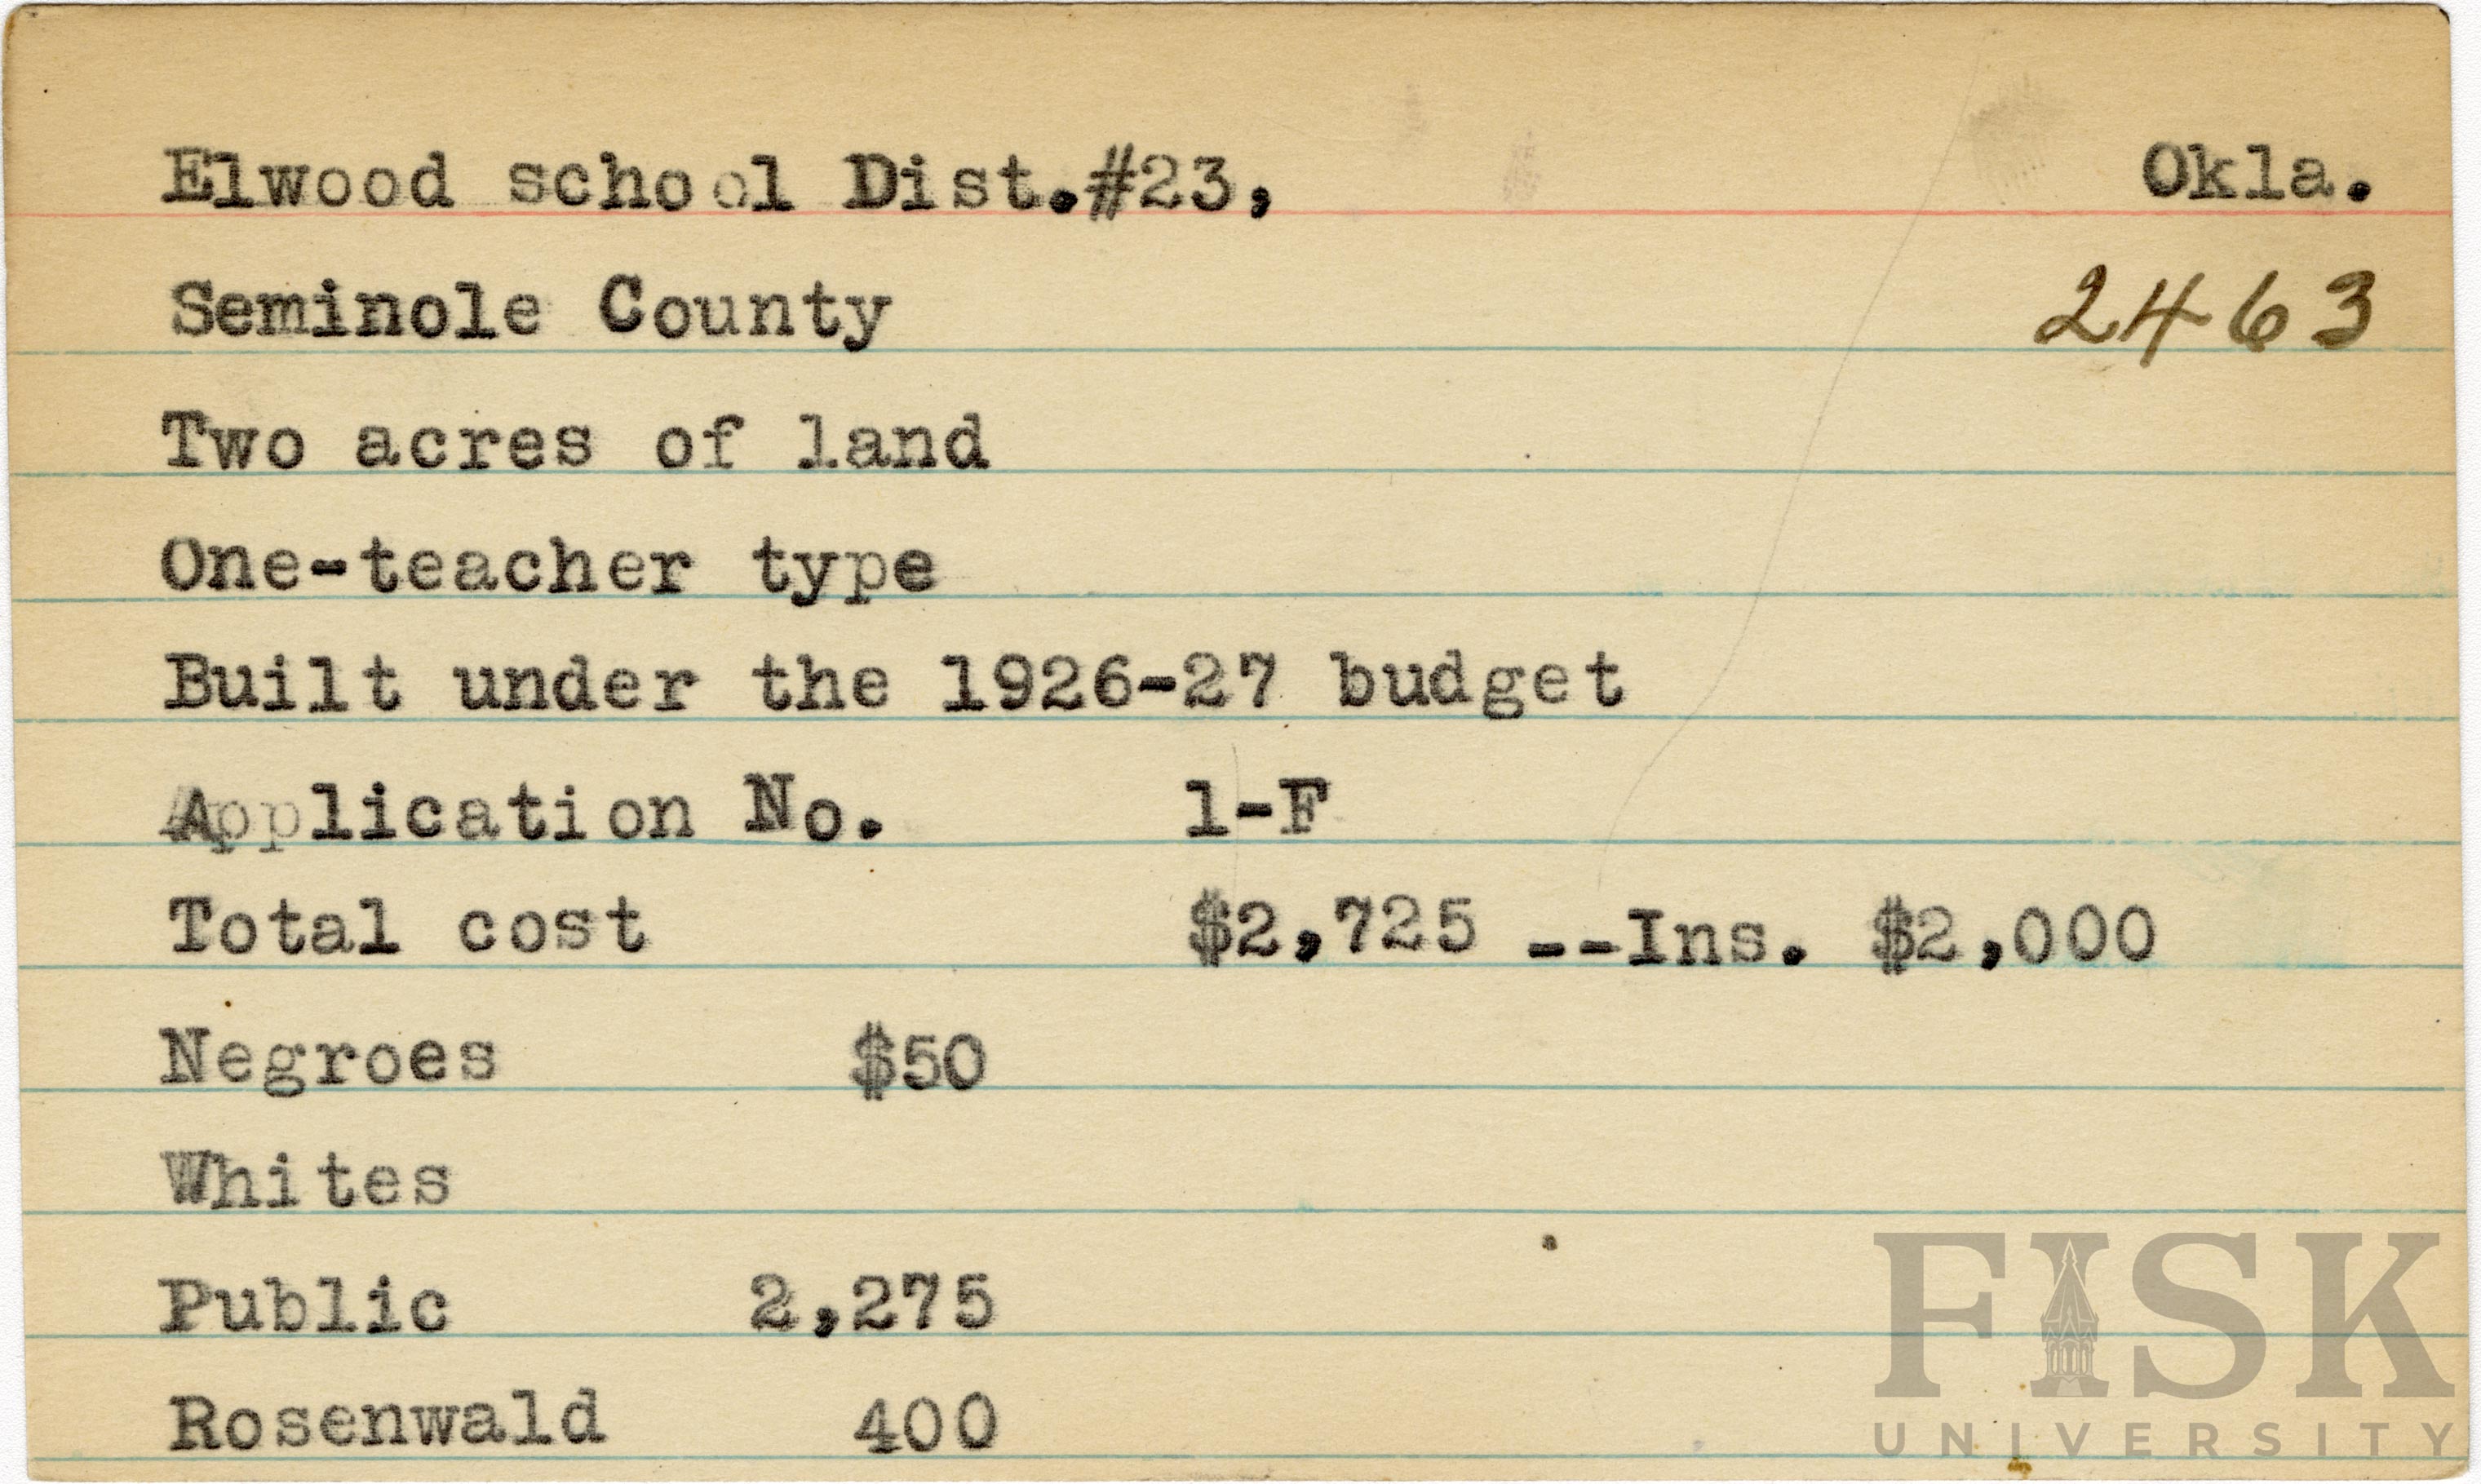 Elwood school Dist.#23, Okla.
Seminole County 2463
Two acres of land
One-teacher type
Built under the 1926-27 budget
Application No. 1-F
Total cost $2,725 --Ins. $2,000
Negroes $50
Whites
Public 2,275
Rosenwald 400
FISK
UNIVERSITY